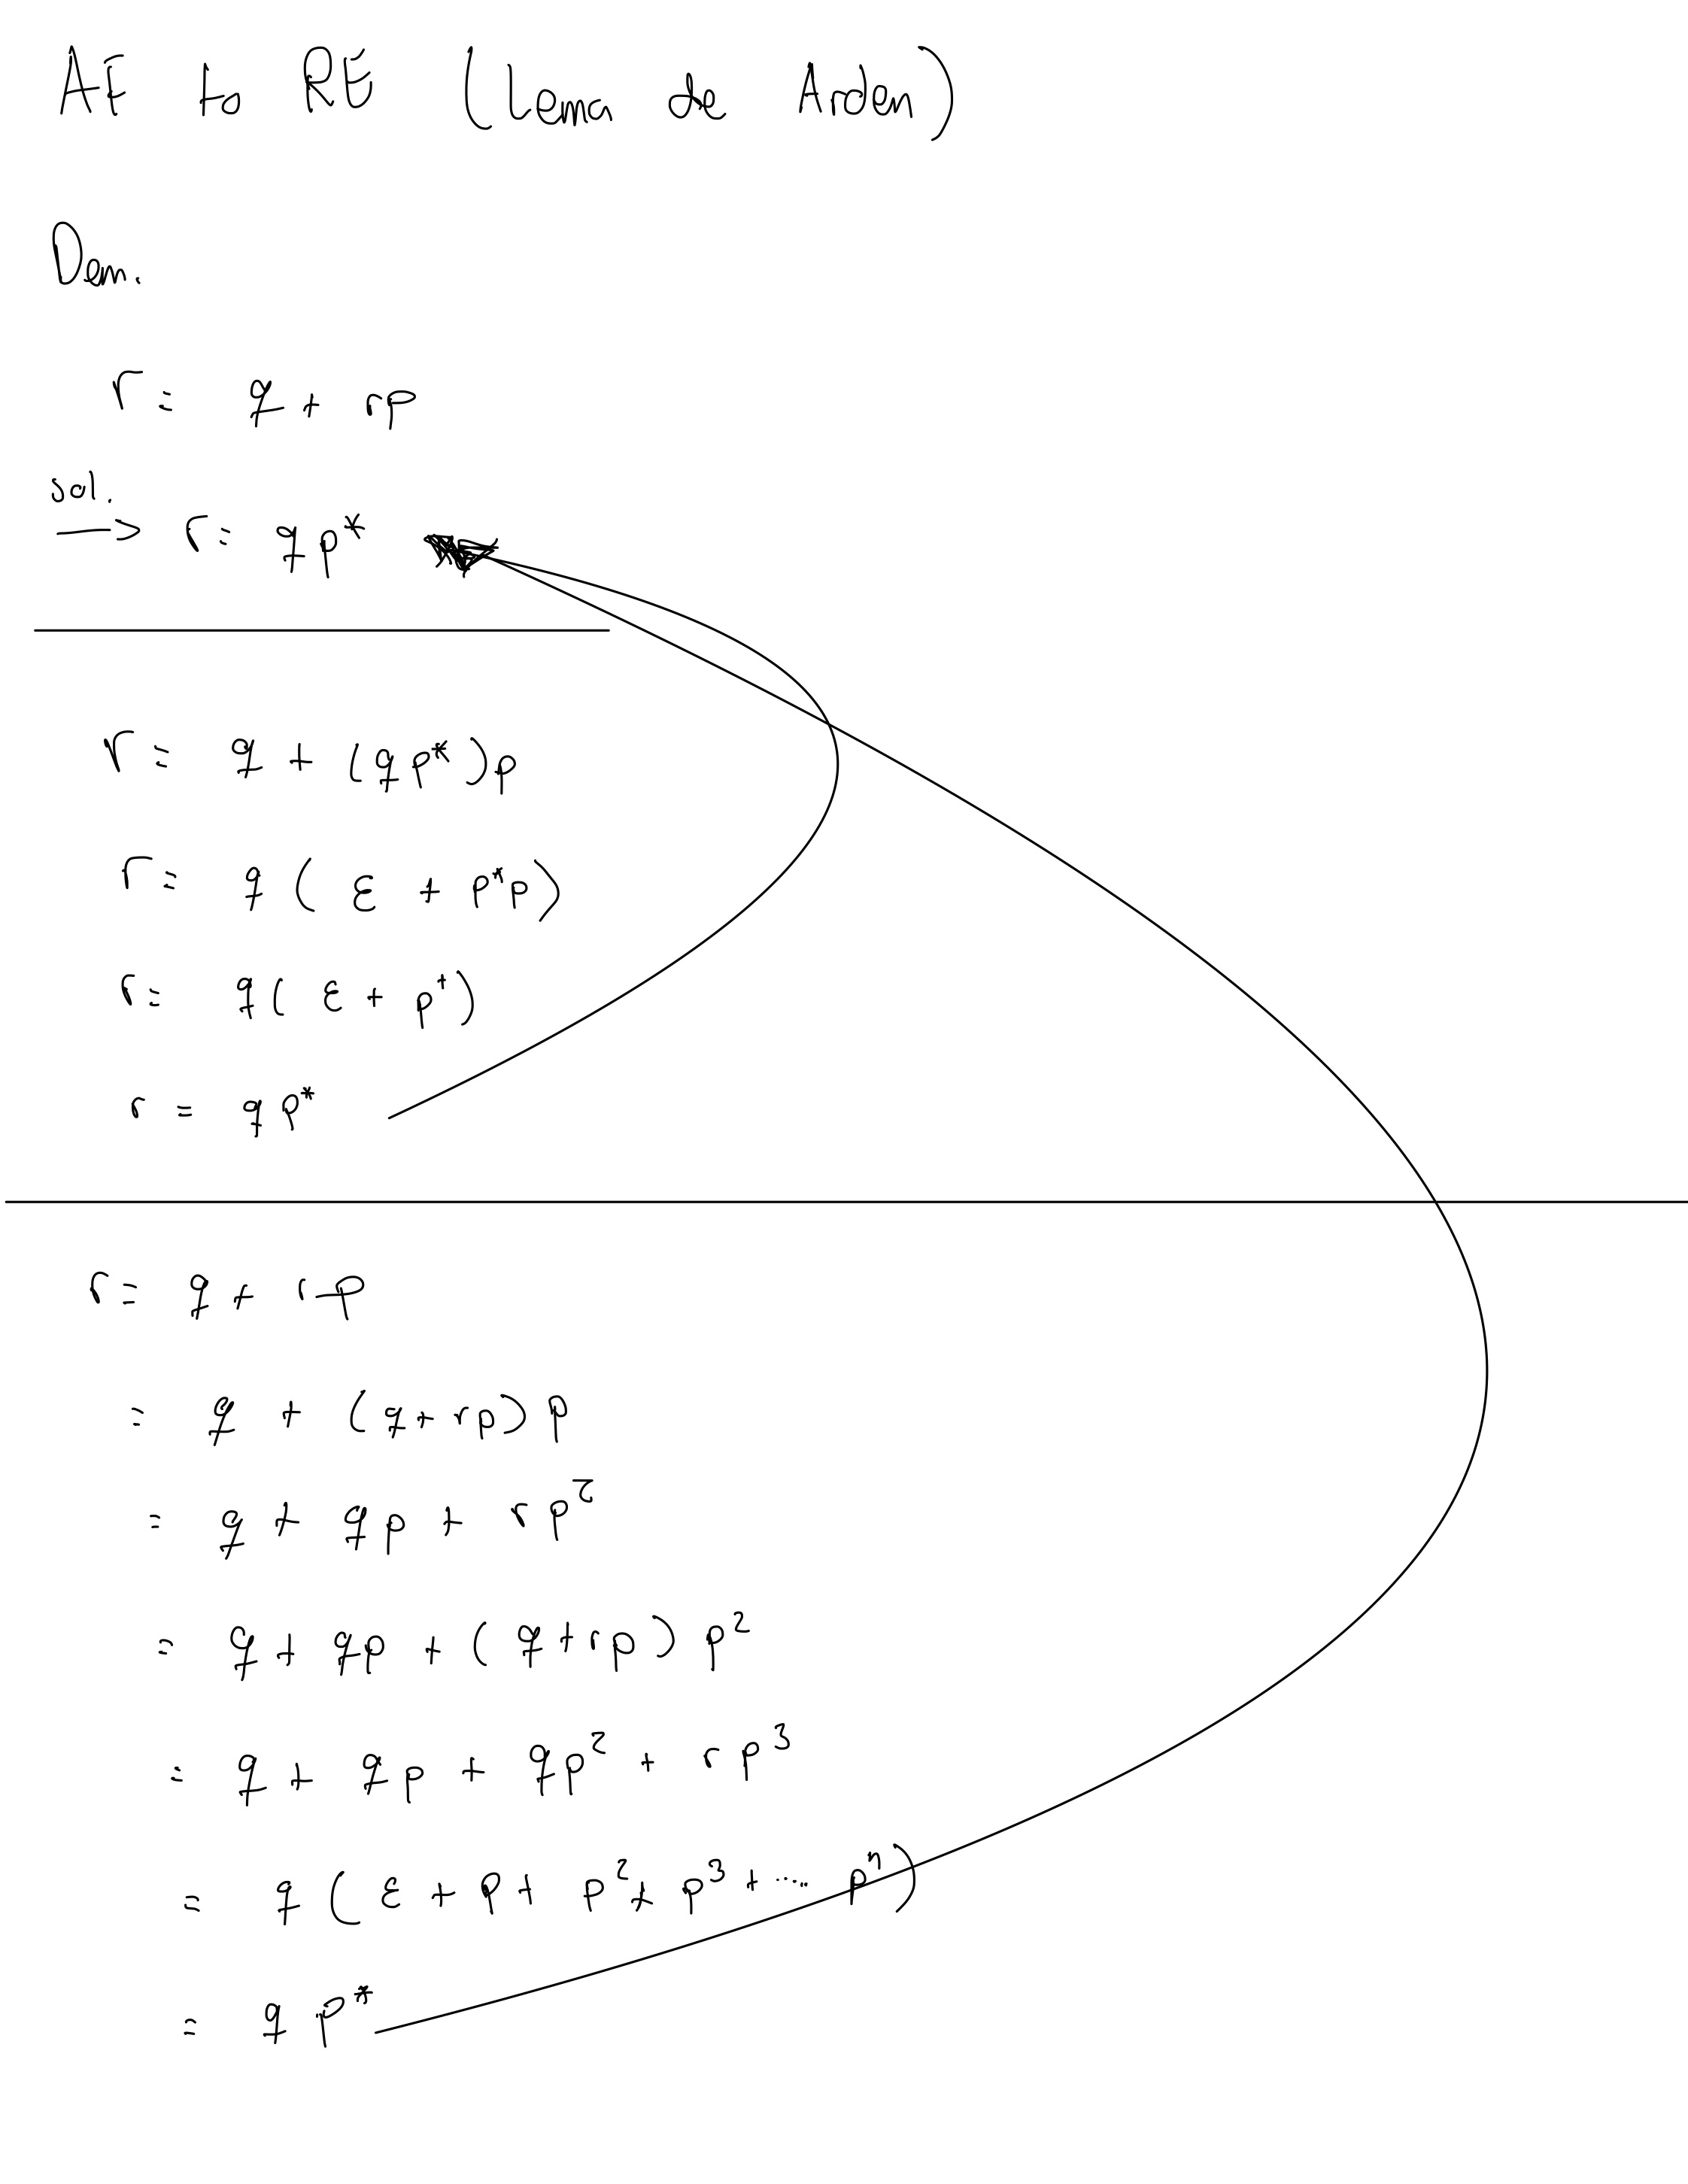 AF to RE (Lema de Arden)
Dem.
r = q + rp
sol.
→ r = qp*
r = q + (qp*)p
r = q(ε + p*p)
r = q(ε + p⁺)
r = qp*
r = q + rp
= q + (q+rp)p
= q + qp + rp²
= q + qp + (q+rp)p²
= q + qp + qp² + rp³
= q(ε + p + p² + p³ + ..... pⁿ)
= qp*